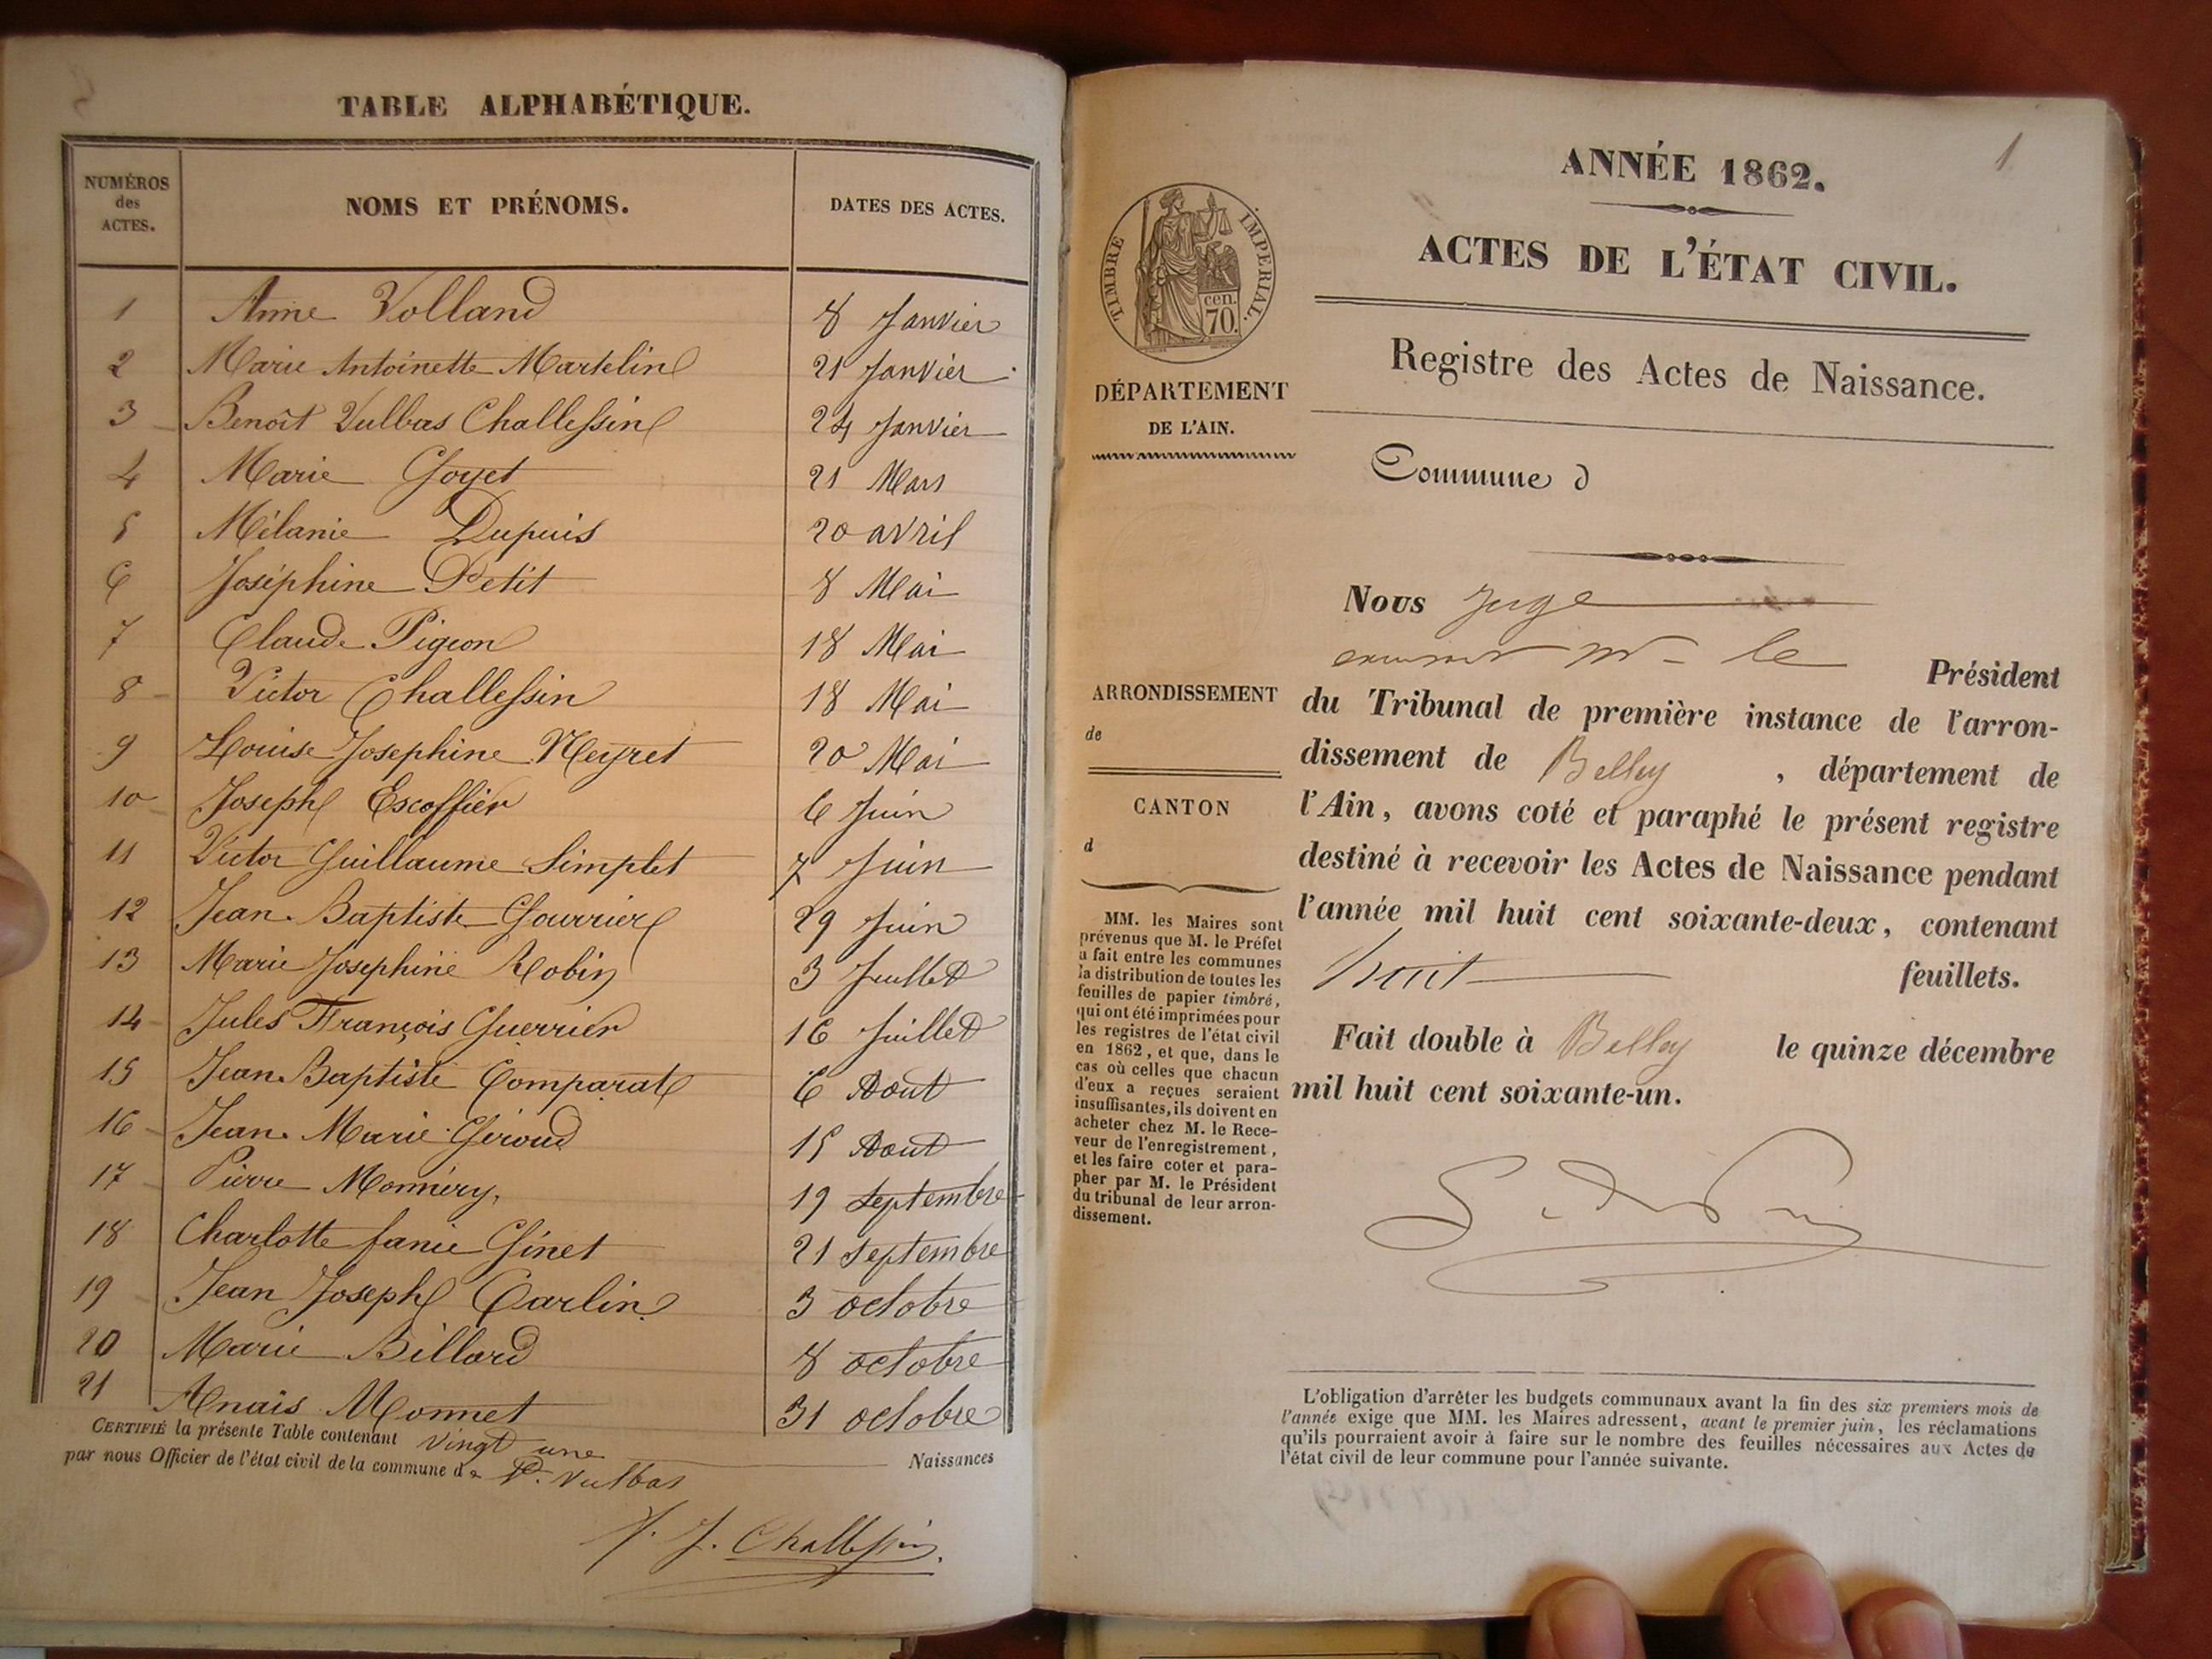 TABLE ALPHABÉTIQUE.
NUMÉROS des ACTES. NOMS ET PRÉNOMS. DATES DES ACTES.
1 Anne Volland 8 Janvier
2 Marie Antoinette Martelin 21 Janvier
3 Benoît Vulbas Challessin 24 Janvier
4 Marie Goyet 21 Mars
5 Mélanie Dupuis 20 avril
6 Joséphine Petit 8 Mai
7 Claude Pigeon 18 Mai
8 Victor Challessin 18 Mai
9 Louise Josephine Neyret 20 Mai
10 Joseph Escoffier 6 Juin
11 Victor Guillaume Simplet 7 Juin
12 Jean Baptiste Gourrier 29 Juin
13 Marie Josephine Robin 3 Juillet
14 Jules François Guerrier 16 Juillet
15 Jean Baptiste Comparat 6 Aout
16 Jean Marie Giroud 15 Aout
17 Pierre Monnéry, 19 Septembre
18 Charlotte fanie Ginet 21 Septembre
19 Jean Joseph Carlin 3 octobre
20 Marie Billard 8 octobre
21 Anais Monnet 31 octobre
CERTIFIÉ la présente Table contenant vingt une Naissances
par nous Officier de l'état civil de la commune de St. Vulbas
J. J. Challessin.
1
ANNÉE 1862.
ACTES DE L'ÉTAT CIVIL.
TIMBRE IMPERIAL.
cen.
70.
Registre des Actes de Naissance.
DÉPARTEMENT
DE L'AIN.
Commune d
Nous Juge
mr le Président
ARRONDISSEMENT
de
du Tribunal de première instance de l'arron-
dissement de Belley , département de
l'Ain, avons coté et paraphé le présent registre
destiné à recevoir les Actes de Naissance pendant
l'année mil huit cent soixante-deux, contenant
huit feuillets.
Fait double à Belley le quinze décembre
mil huit cent soixante-un.
CANTON
d
MM. les Maires sont
prévenus que M. le Préfet
a fait entre les communes
la distribution de toutes les
feuilles de papier timbré,
qui ont été imprimées pour
les registres de l'état civil
en 1862, et que, dans le
cas où celles que chacun
d'eux a reçues seraient
insuffisantes, ils doivent en
acheter chez M. le Rece-
veur de l'enregistrement,
et les faire coter et para-
pher par M. le Président
du tribunal de leur arron-
dissement.
L'obligation d'arrêter les budgets communaux avant la fin des six premiers mois de
l'année exige que MM. les Maires adressent, avant le premier juin, les réclamations
qu'ils pourraient avoir à faire sur le nombre des feuilles nécessaires aux Actes de
l'état civil de leur commune pour l'année suivante.